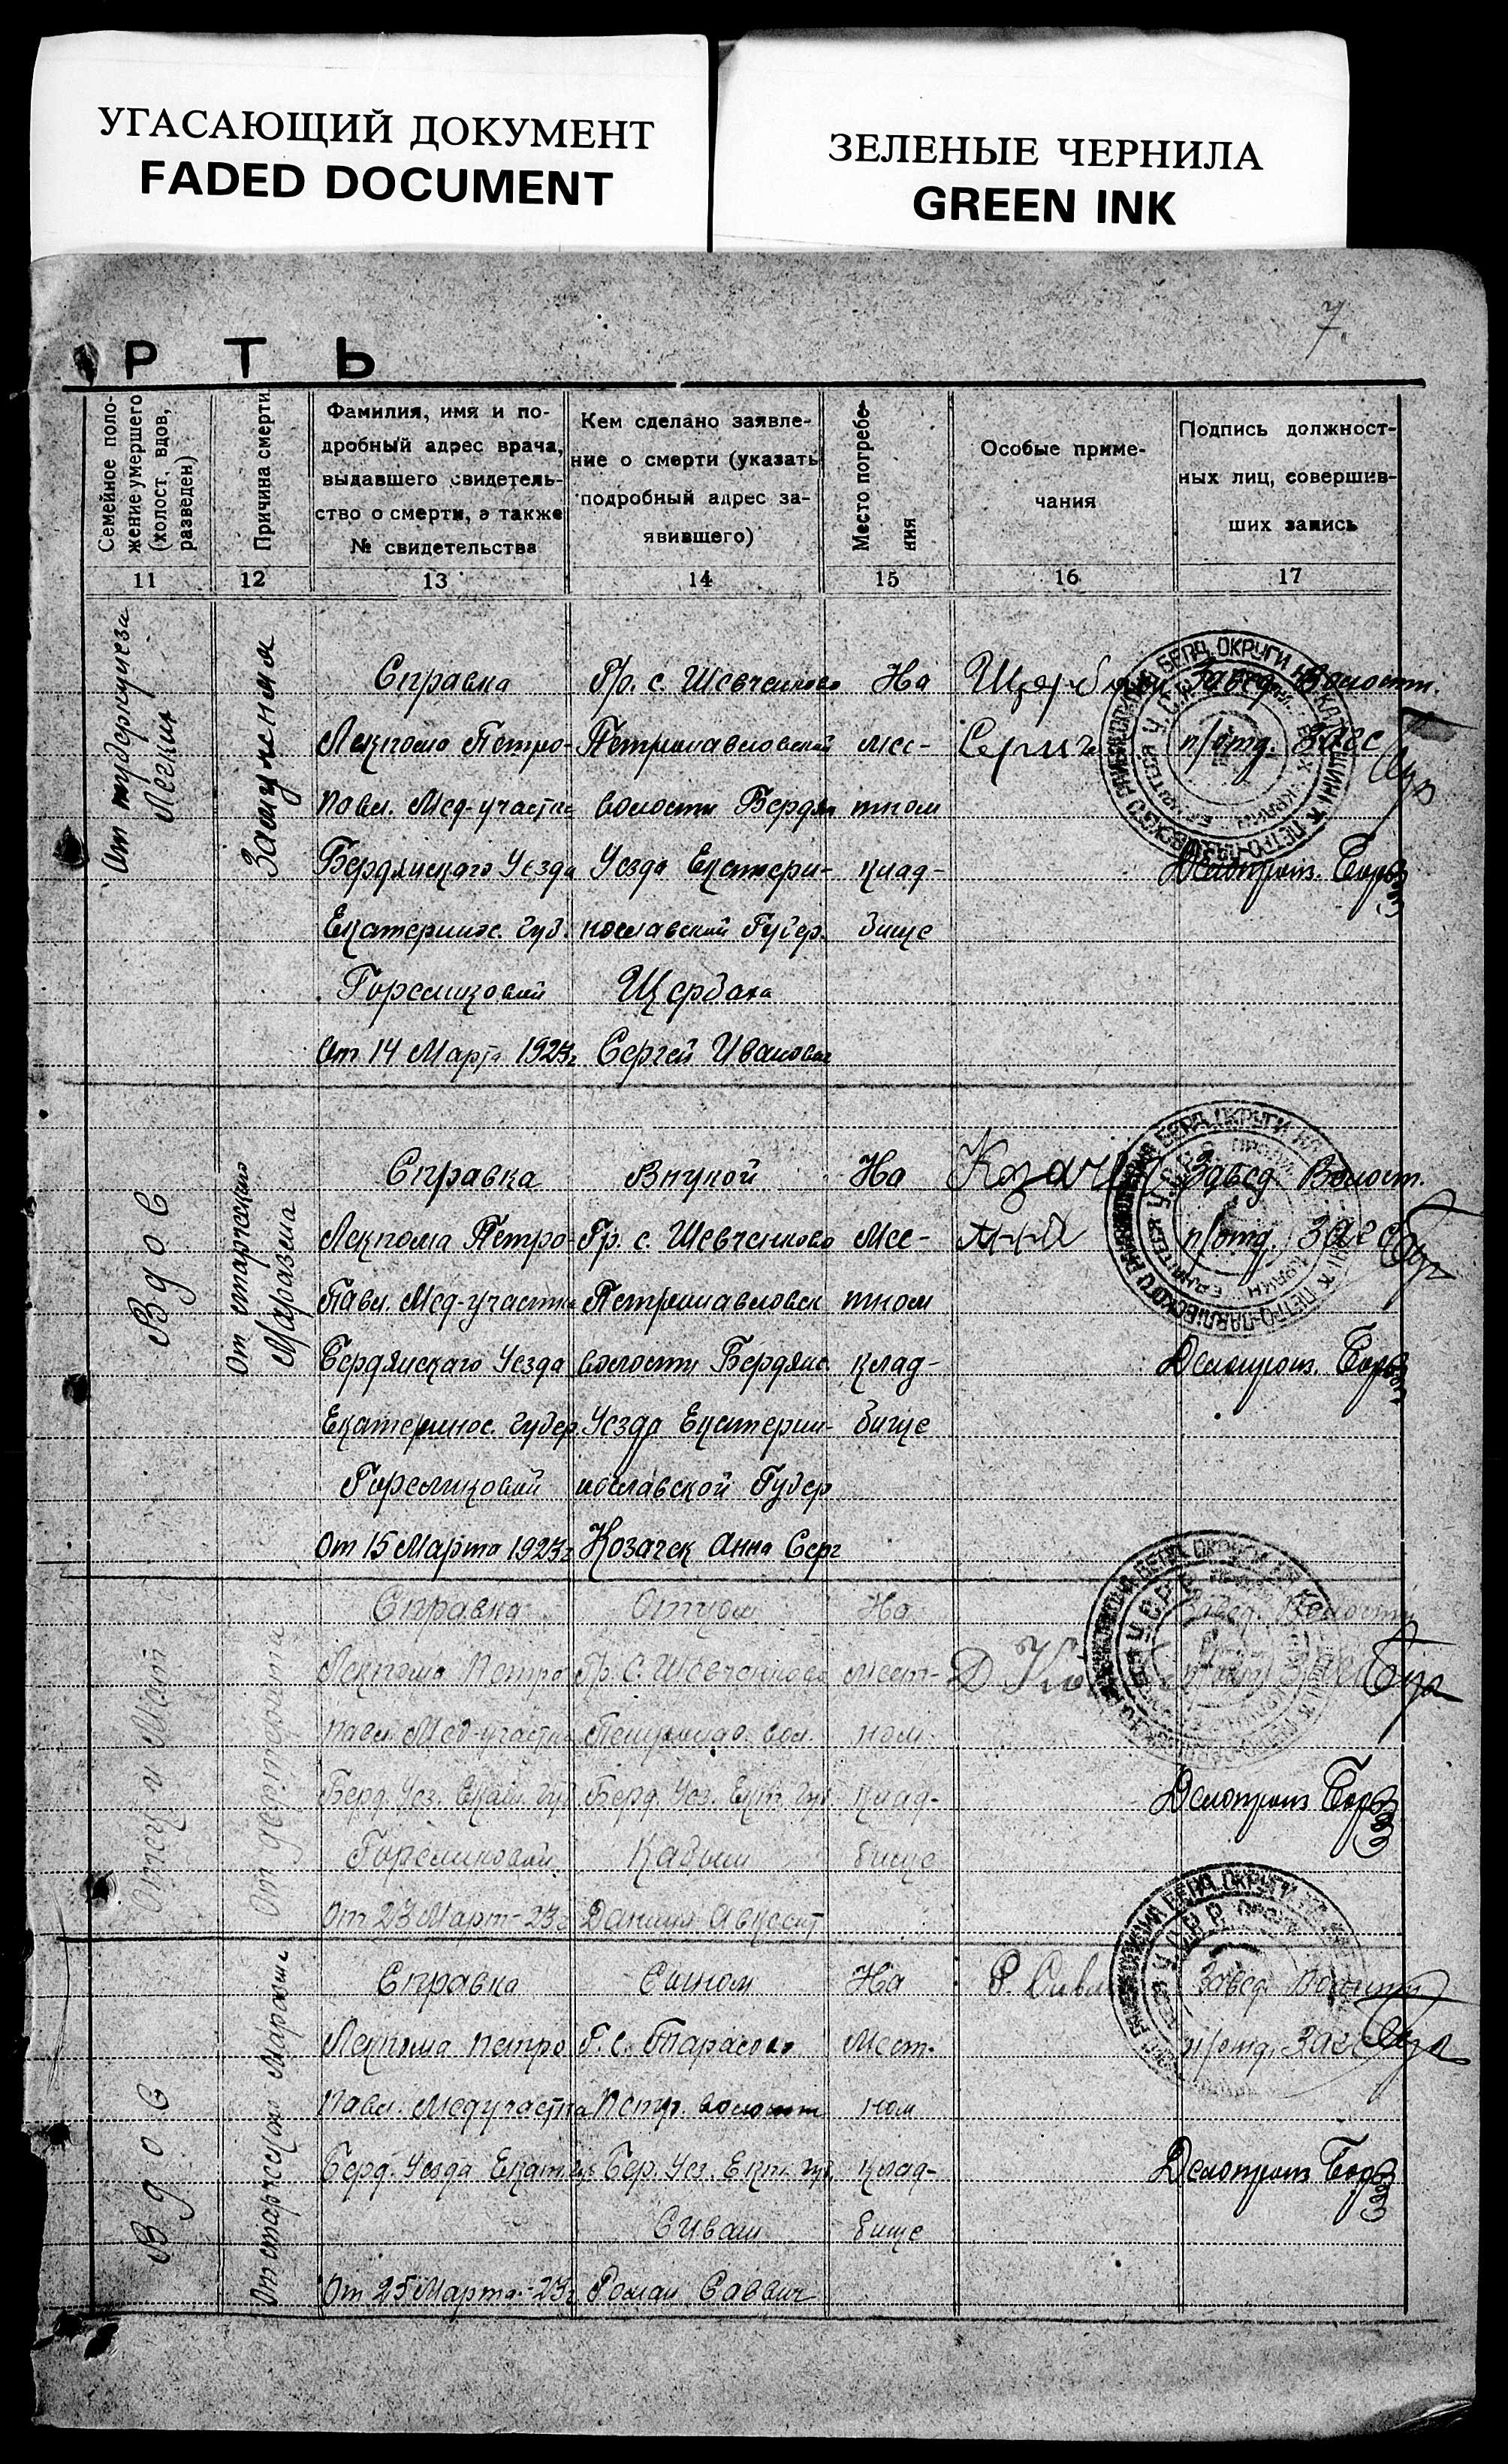 УГАСАЮЩИЙ ДОКУМЕНТ
FADED DOCUMENT
ЗЕЛЕНЫЕ ЧЕРНИЛА
GREEN INK
7.
РТЬ
Семейное поло-
жение умершего
(холост, вдов,
разведен)
Причина смерти
Фамилия, имя и по-
дробный адрес врача,
выдавшего свидетель-
ство о смерти, а также
№ свидетельства
Кем сделано заявле-
ние о смерти (указать
подробный адрес за-
явившего)
Место погребе-
ния
Особые приме-
чания
Подпись должност-
ных лиц, совершив-
ших запись
11 12 13 14 15 16 17
От туберкулеза
Легких
Справка
Лекпома Петро-
павл. Мед-участка
Бердянского Уезда
Екатеринос. Губ.
От 14 Марта 1923 г.
Гр. с. Шевченково
Петропавловской
волости Бердян
Уезда Екатери-
нославской Губер.
Щербака
Сергей Иванович
На
мес-
тном
клад-
бище
Завед. Волостн.
п/отд. Загс
Делопроиз.
Вдов
От старческого
Маразма
Справка
Лекпома Петро-
Павл. Мед-участка
Бердянскаго Уезда
Екатеринос. Губер.
От 15 Марта 1923 г.
Внукой
Гр. с. Шевченково
Петропавловск
волости Бердянс.
Уезда Екатерин-
ославской Губер
Козачек Анна Серг
На
Мес-
тном
клад-
бище
Завед Волост.
п/отд. Загс
Делопроиз.
От
Справка
Лекпома Петро
павл. Мед-участка
Берд. Уез. Екат. Губ
От 23 Март-23 г.
Отцом
Гр. С. Шевченково
Петропав. вол.
Берд. Уез. Ект. Губ.
На
мест-
ном
клад-
бище
Завед. Волостн
Делопроиз
Вдов
От старческого Маразма
Справка
Лекпома Петро
Павл. Медучастка
Берд. Уезда Екат. Губ
От 25 Марта-23 г.
Сыном
Г. с. Тарасово
Петр. волости
Бер. Уез. Ект. Губ.
Сиваш
Роман Саввич
На
Мест-
ном
клад-
бище
Завед. Волостн
п/отд. Загс
Делопроиз